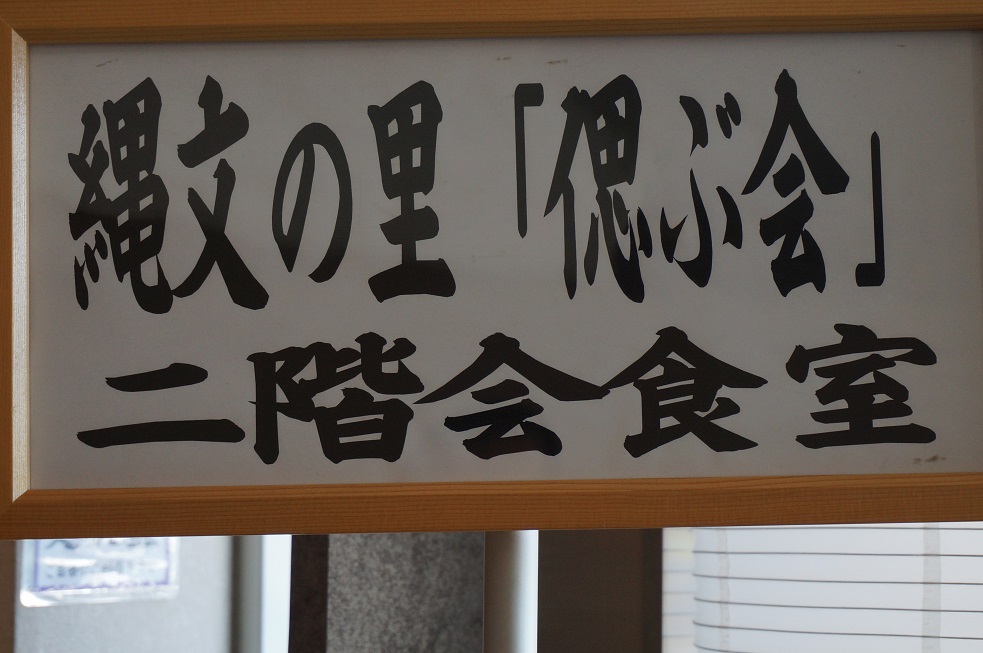 縄文の里「偲ぶ会」
二階会食室